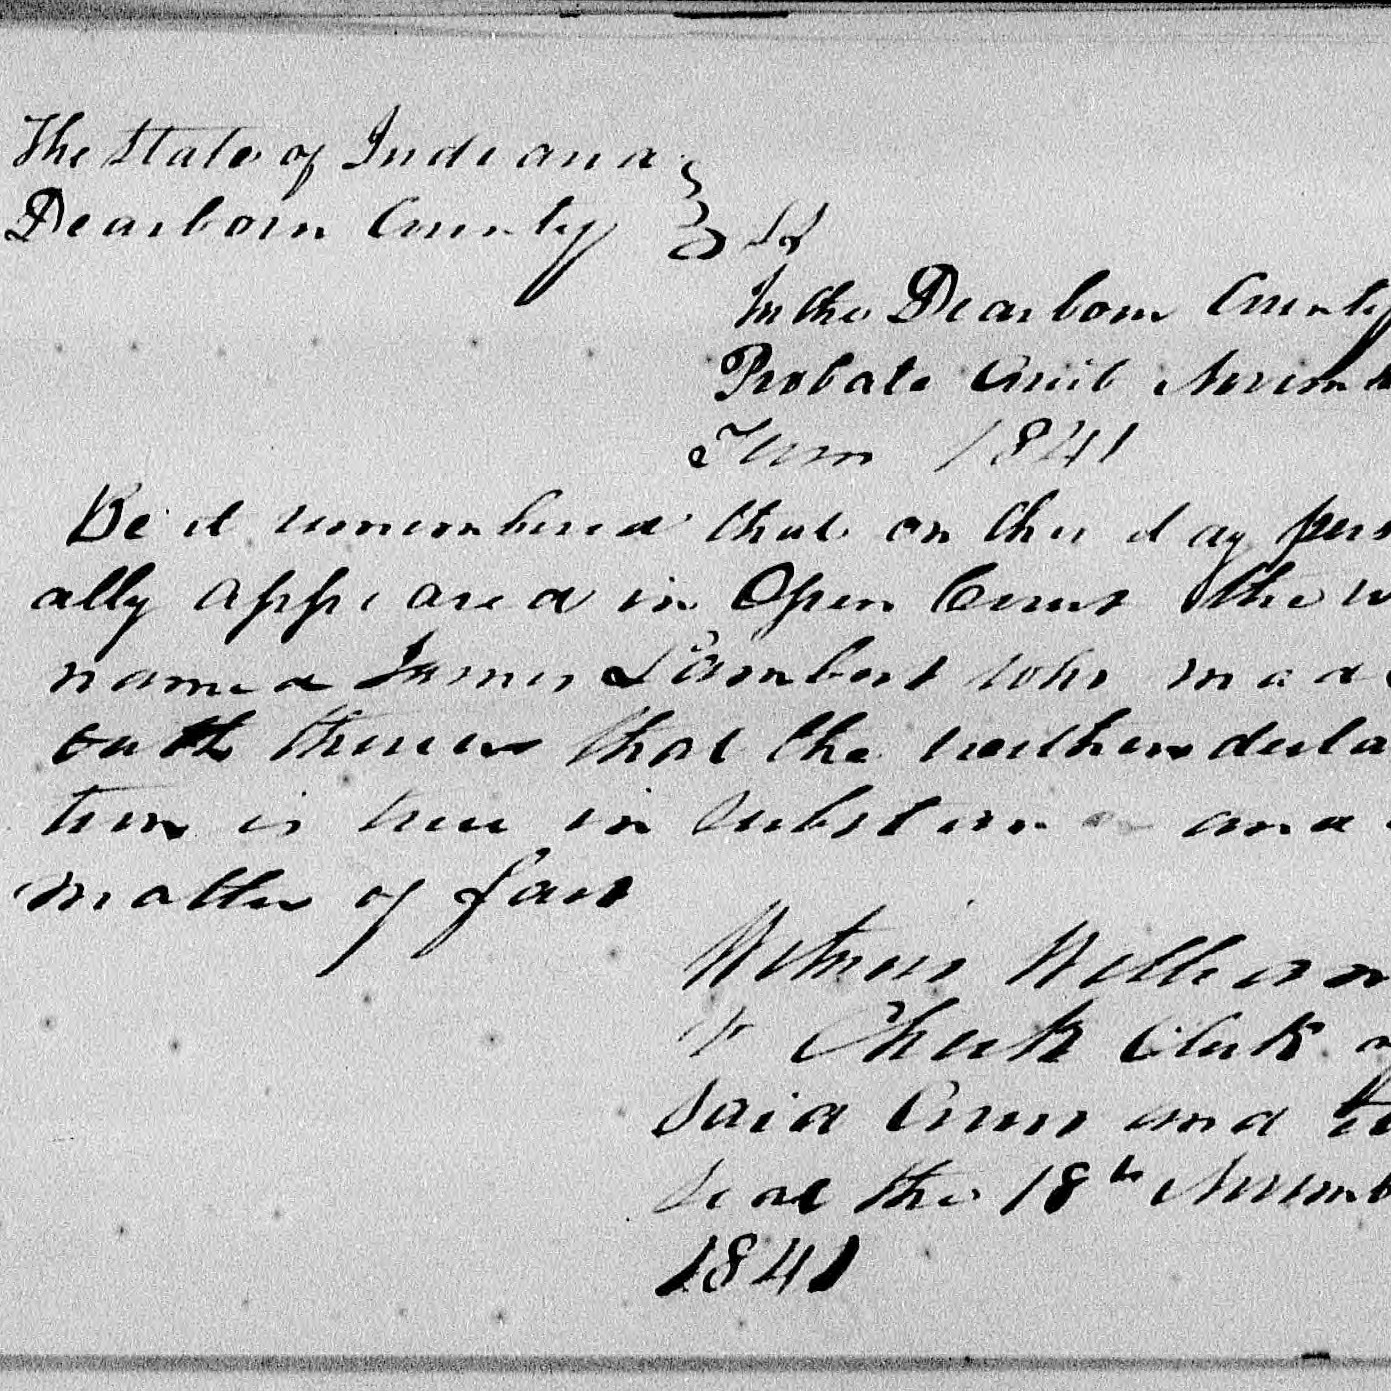 The State of Indiana
Dearborn County } Ss
In the Dearborn County
Probate Court Novemb
Term 1841
Be it remembered that on this day pers
ally appeared in Open Court the w
named James Lambert who mad
oath thereto that the within decla
tion is true in substance and
matter of fact
Witness William
V Cheek Clerk of
said Court and
seal the 18th Novemb
1841